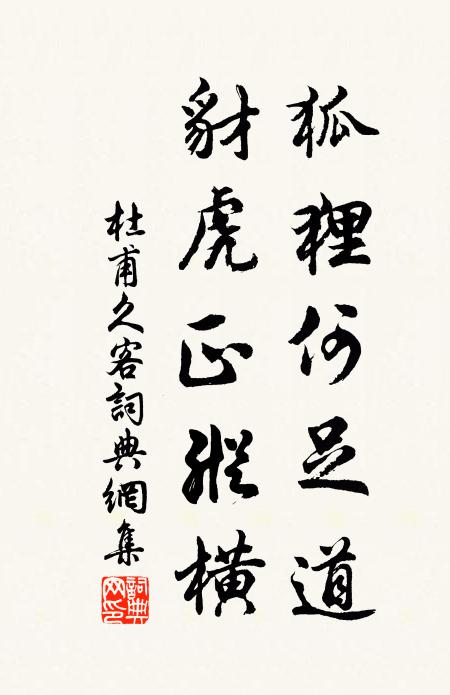 狐狸何足道
豺虎正縱橫
杜甫久客詞典網集
詞典网印